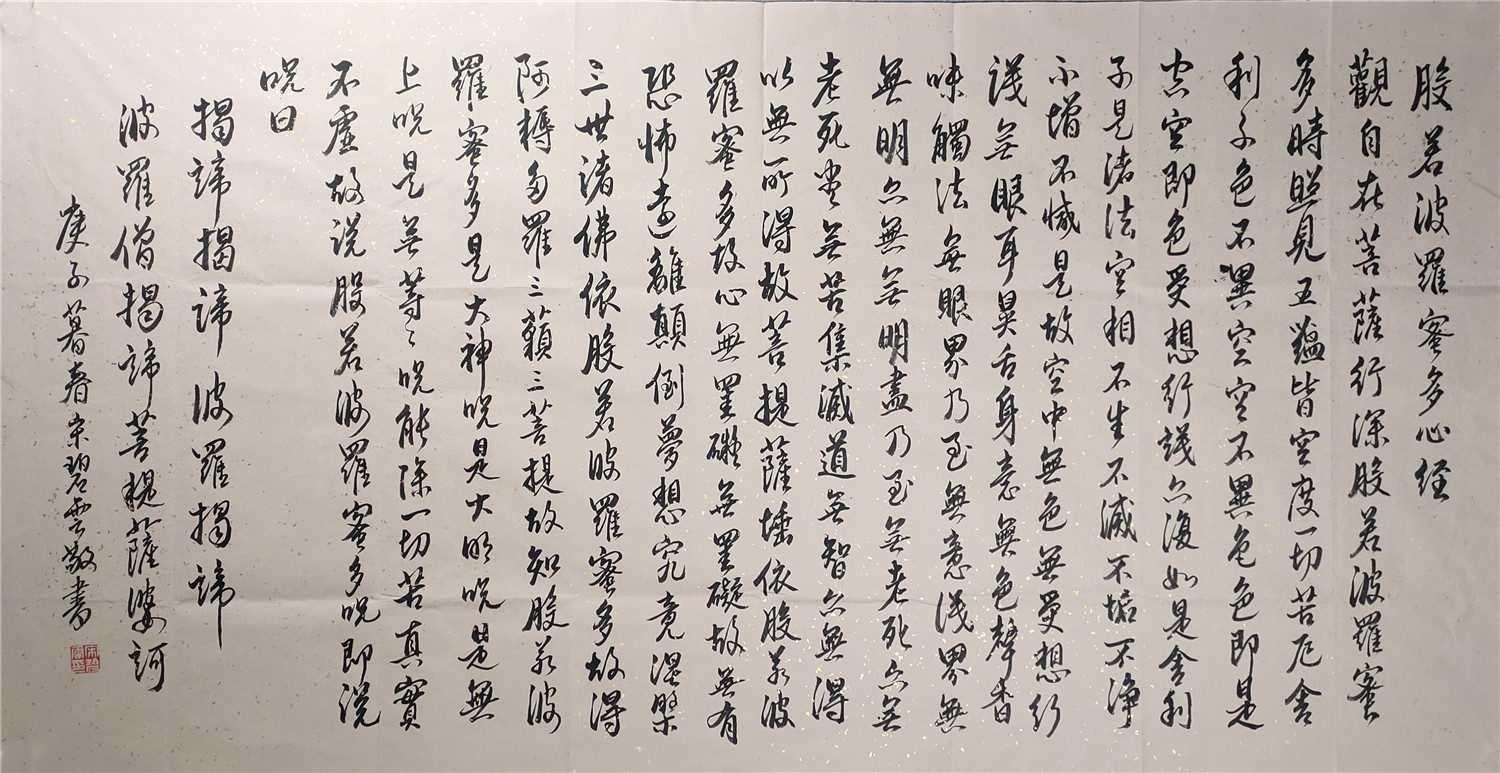 般若波羅蜜多心经
觀自在菩薩行深般若波羅蜜
多時照見五蘊皆空度一切苦厄舍
利子色不異空空不異色色即是
空空即色受想行識亦復如是舍利
子是诸法空相不生不滅不垢不净
不增不減是故空中無色無受想行
識無眼耳鼻舌身意無色聲香
味觸法無眼界乃至無意識界無
無明亦無無明盡乃至無老死亦無
老死盡無苦集滅道無智亦無得
以無所得故菩提薩埵依般若波
羅蜜多故心無罣礙無罣礙故無有
恐怖遠離顛倒夢想究竟涅槃
三世诸佛依般若波羅蜜多故得
阿耨多羅三藐三菩提故知般若波
羅蜜多是大神呪是大明呪是無
上呪是無等々呪能除一切苦真實
不虛故说般若波羅蜜多呪即说
呪曰
揭諦揭諦波羅揭諦
波羅僧揭諦菩提薩婆訶
庚子暮春宋碧雲敬書